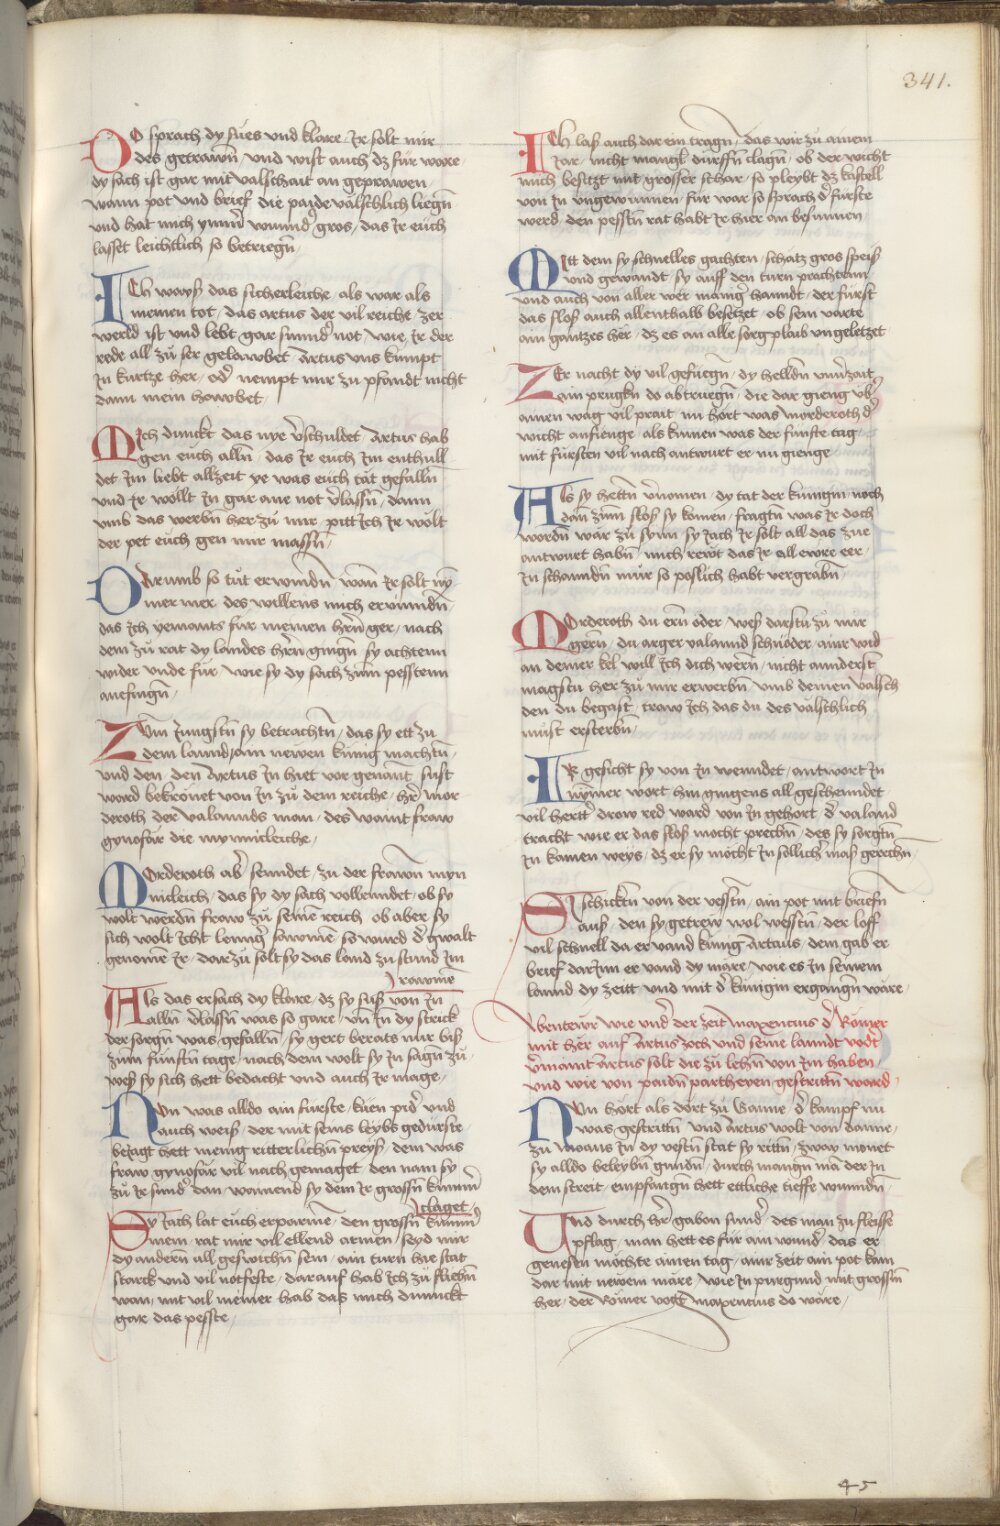 341.
DO sprach dy sües vnd klare / Ir solt mir
des getrawñ / vnd wist auch dz für wore /
dy sach ist gar mit valschait an geprawen /
wann pot vnd brief die paide välschlich liegñ
vnd hat mich ymm̃ wunnd̾ gros / das Ir euch
lasset leichtlich so betriegñ /
ICh ways das sicherleiche / als war als
meinen tot / das artus der vil reiche zer
werld ist vnd lebt gar sunnd̾ not / wie Ir der
rede all zů ser gelawbet Artus vns kumpt
In kurtze her / od̾ nempt mir zu pfandt nicht
dann mein hawbet
MIch dunckt das nye v̾schuldet Artus hab
gen euch allñ / das Ir euch Im enthull
det Im liebt allzeit ye was euch tät gefallñ
vnd Ir wollt In gar ane not v̾lassñ / dann
vmb das werbñ her zů mir / pitt Ich Ir wölt
der pet euch gen mir massñ /
DArumb so tüt erwindñ / wañ Ir solt ny̾
mer mer des willens mich ervinndñ /
das Ich yemants für meinen hrñ ger / nach
dem zů rat dy landes hrñ gingñ sy achtenn
wider vnde für / wie sy dy sach zům pesstenn
anefingñ /
Zům Jungstñ sy betrachtñ / das sy ett zů
dem lannd / ain newen künig machtñ /
vnd den / den Artus In hiet vor genãnt sust
ward bekrönet von In zů dem reiche / hr̾ mor
deroth der valannds man / des wãnt fraw
gynofar die mynnicleiche /
MOrderoth ab̾ senndet / zu der frawñ myn
nicleich / das sy dy sach vollenndet / ob sy
wolt werdñ fraw zů seinẽ reich ob aber sy
sich wolt Icht lenng̾ sawmẽ so wurd d̾ gwalt
genomẽ Ir / dar zů solt sy das land zů stund Im
rawmẽ
Als das ersach dy klare / dz sy sust von In
allñ v̾lassñ was so gare / vñ In dy strick
der sorgñ was gefallñ / sy gert berats nur bis
zům fünftñ tage / nach dem wolt sy In sagñ zů
wes sy sich hett bedacht vnd auch Ir mage /
NVn was alldo ain fürste / küen pid̾ vnd
auch weis / der mit seins leybs gedürste /
beiagt hett menig ritterlichñ preys / dem was
fraw gynofär vil nach gemaget den nam sy
zů Ir sund̾ dan / wainend sy dem Ir grossñ kum̃
claget /
SY Iach lat euch erparmẽ / den grossñ kum̃
mein / rat mir vil ellend armen / seyd mir
dy andern all geswichñ sein / ain turn hie stat
starck vnd vil notfeste / darauf hab Ich zů fliehñ
wan / mit vil meiner hab das mich dunnckt
gar das pesste /
ICh las auch dar ein tragñ / das wir zů ainem
Iar / nicht mangl dürffñ clagñ / ob der wicht
mich besitzt mit grosser schar / so pleybt dz kastell
von In vngewinnen / für war so sprach d̾ fürste
werd / den pesstñ rat habt Ir hier an besunnen /
MItt dem sy schnelles gachten / schätz gros speis
vnd gewandt / sy auff den turn prachtenn
vnd auch von aller wer mänig̾ hanndt / der fürst
das slos auch allenthalb besetzet / ob sein varte
ain gantzes her / dz es an alle sorg plaib vngeletzet
ZEr nacht dy vil gefüegñ / dy helldñ vnu̾zait
ain prugkñ do abtruegñ / die dar gieng vb̾
ainen wag vil prait / nu hört was morderoth d̾
wicht anfienge / als kumen was der fünfte tag /
mit fürsten vil nach antwurt er nu gienge
Als sy hettñ v̾nomen / dy tat der künigin / noch
dañ zům slos sy komen / fragtñ was Ir doch
wordñ wär zů synn / sy Iach Ir solt all das zue
antwurt habñ / mich rewt das Ir all ewre eer /
In schanndñ mür so pöslich habt vergrabñ /
MOrderoth du ern̄ öder / wes darstu zů mir
gern̄ / du arger valannd schnöder / ainr wid
an deiner kel will Ich dich wern̄ / nicht annderst
magstu her zů mir erwerbñ / vmb deinen valsch
den du begast / traw Ich das du des välschlich
must ersterbñ /
IR gesicht sy von In wenndet / antwort In
nym̃er wort hin gingens all geschenndet
vil hertt̾ drow red ward von In gehort / d̾ valand
tracht wie er das slos mocht prechñ / des sy sorgtñ
In kainen weys / dz er sy möcht In sollich̾ mas gerechñ
SI schicktñ von der vesstñ / ain pot mit briefñ
aus / den sy getrew wol wesstñ / der loff
vil schnell da er vand künig Artaus / dem gab er
brief dar Inn er vand dy märe / wie es In seinem
lannd dy zeitt / vnd mit d̾ künigin ergangñ wäre /
Abentewr wie vnd̾ der zeit maxencius d̾ Römer
mit her auf Artus zoch vnd seine lanndt vodt̾
v̾maint Artus solt die zů lehñ von Im haben /
vnd wie von paidñ partheyen gestrittñ ward /
NVn hört als dort zů Ganne / d̾ kampf nu
was gestrittñ / vnd Artus wolt von danne /
zu Moaus In dy vestñ stat sy rittñ / zway monet
sy alldo beleybñ gundñ / durch mangñ mã der In
dem streit / empfangñ hett ettliche tieffe wunndñ /
Vnd durch hr̾ gabon sund̾ / des man zu fleisse
pflag / man hett es für ain wund̾ / das er
genesen möchte ainen tag / ainr zeit ain pot kam
dar mit newem märe / wie In purgund mit grossñ
her / der Römer vogt maxencius do wäre /
45